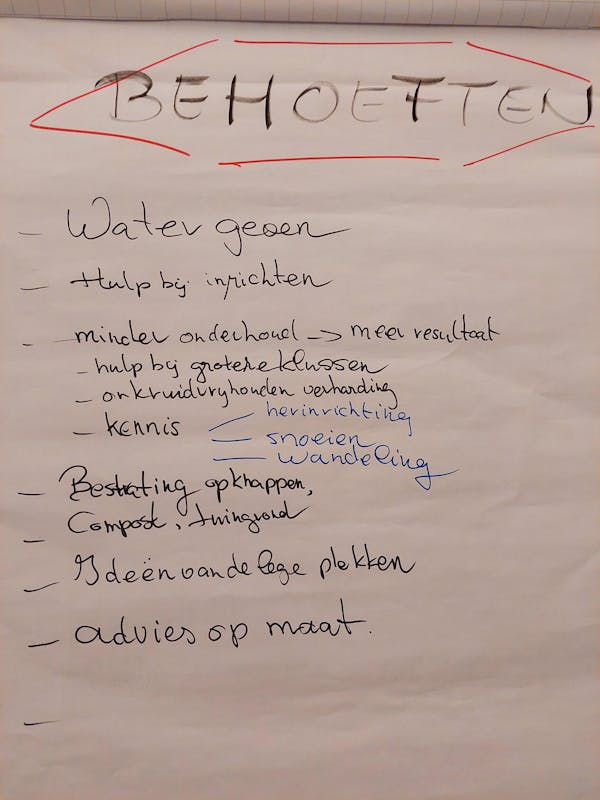 BEHOEFTEN
- Water geven
- Hulp bij inrichten
- minder onderhoud -> meer resultaat
- hulp bij grotere klussen
- onkruidvrijhouden verharding
- kennis
- herinrichting
- snoeien
- wandeling
- Bestrating opknappen,
- Compost, tuingrond
- Ideeën van de lege plekken
- advies op maat.
-